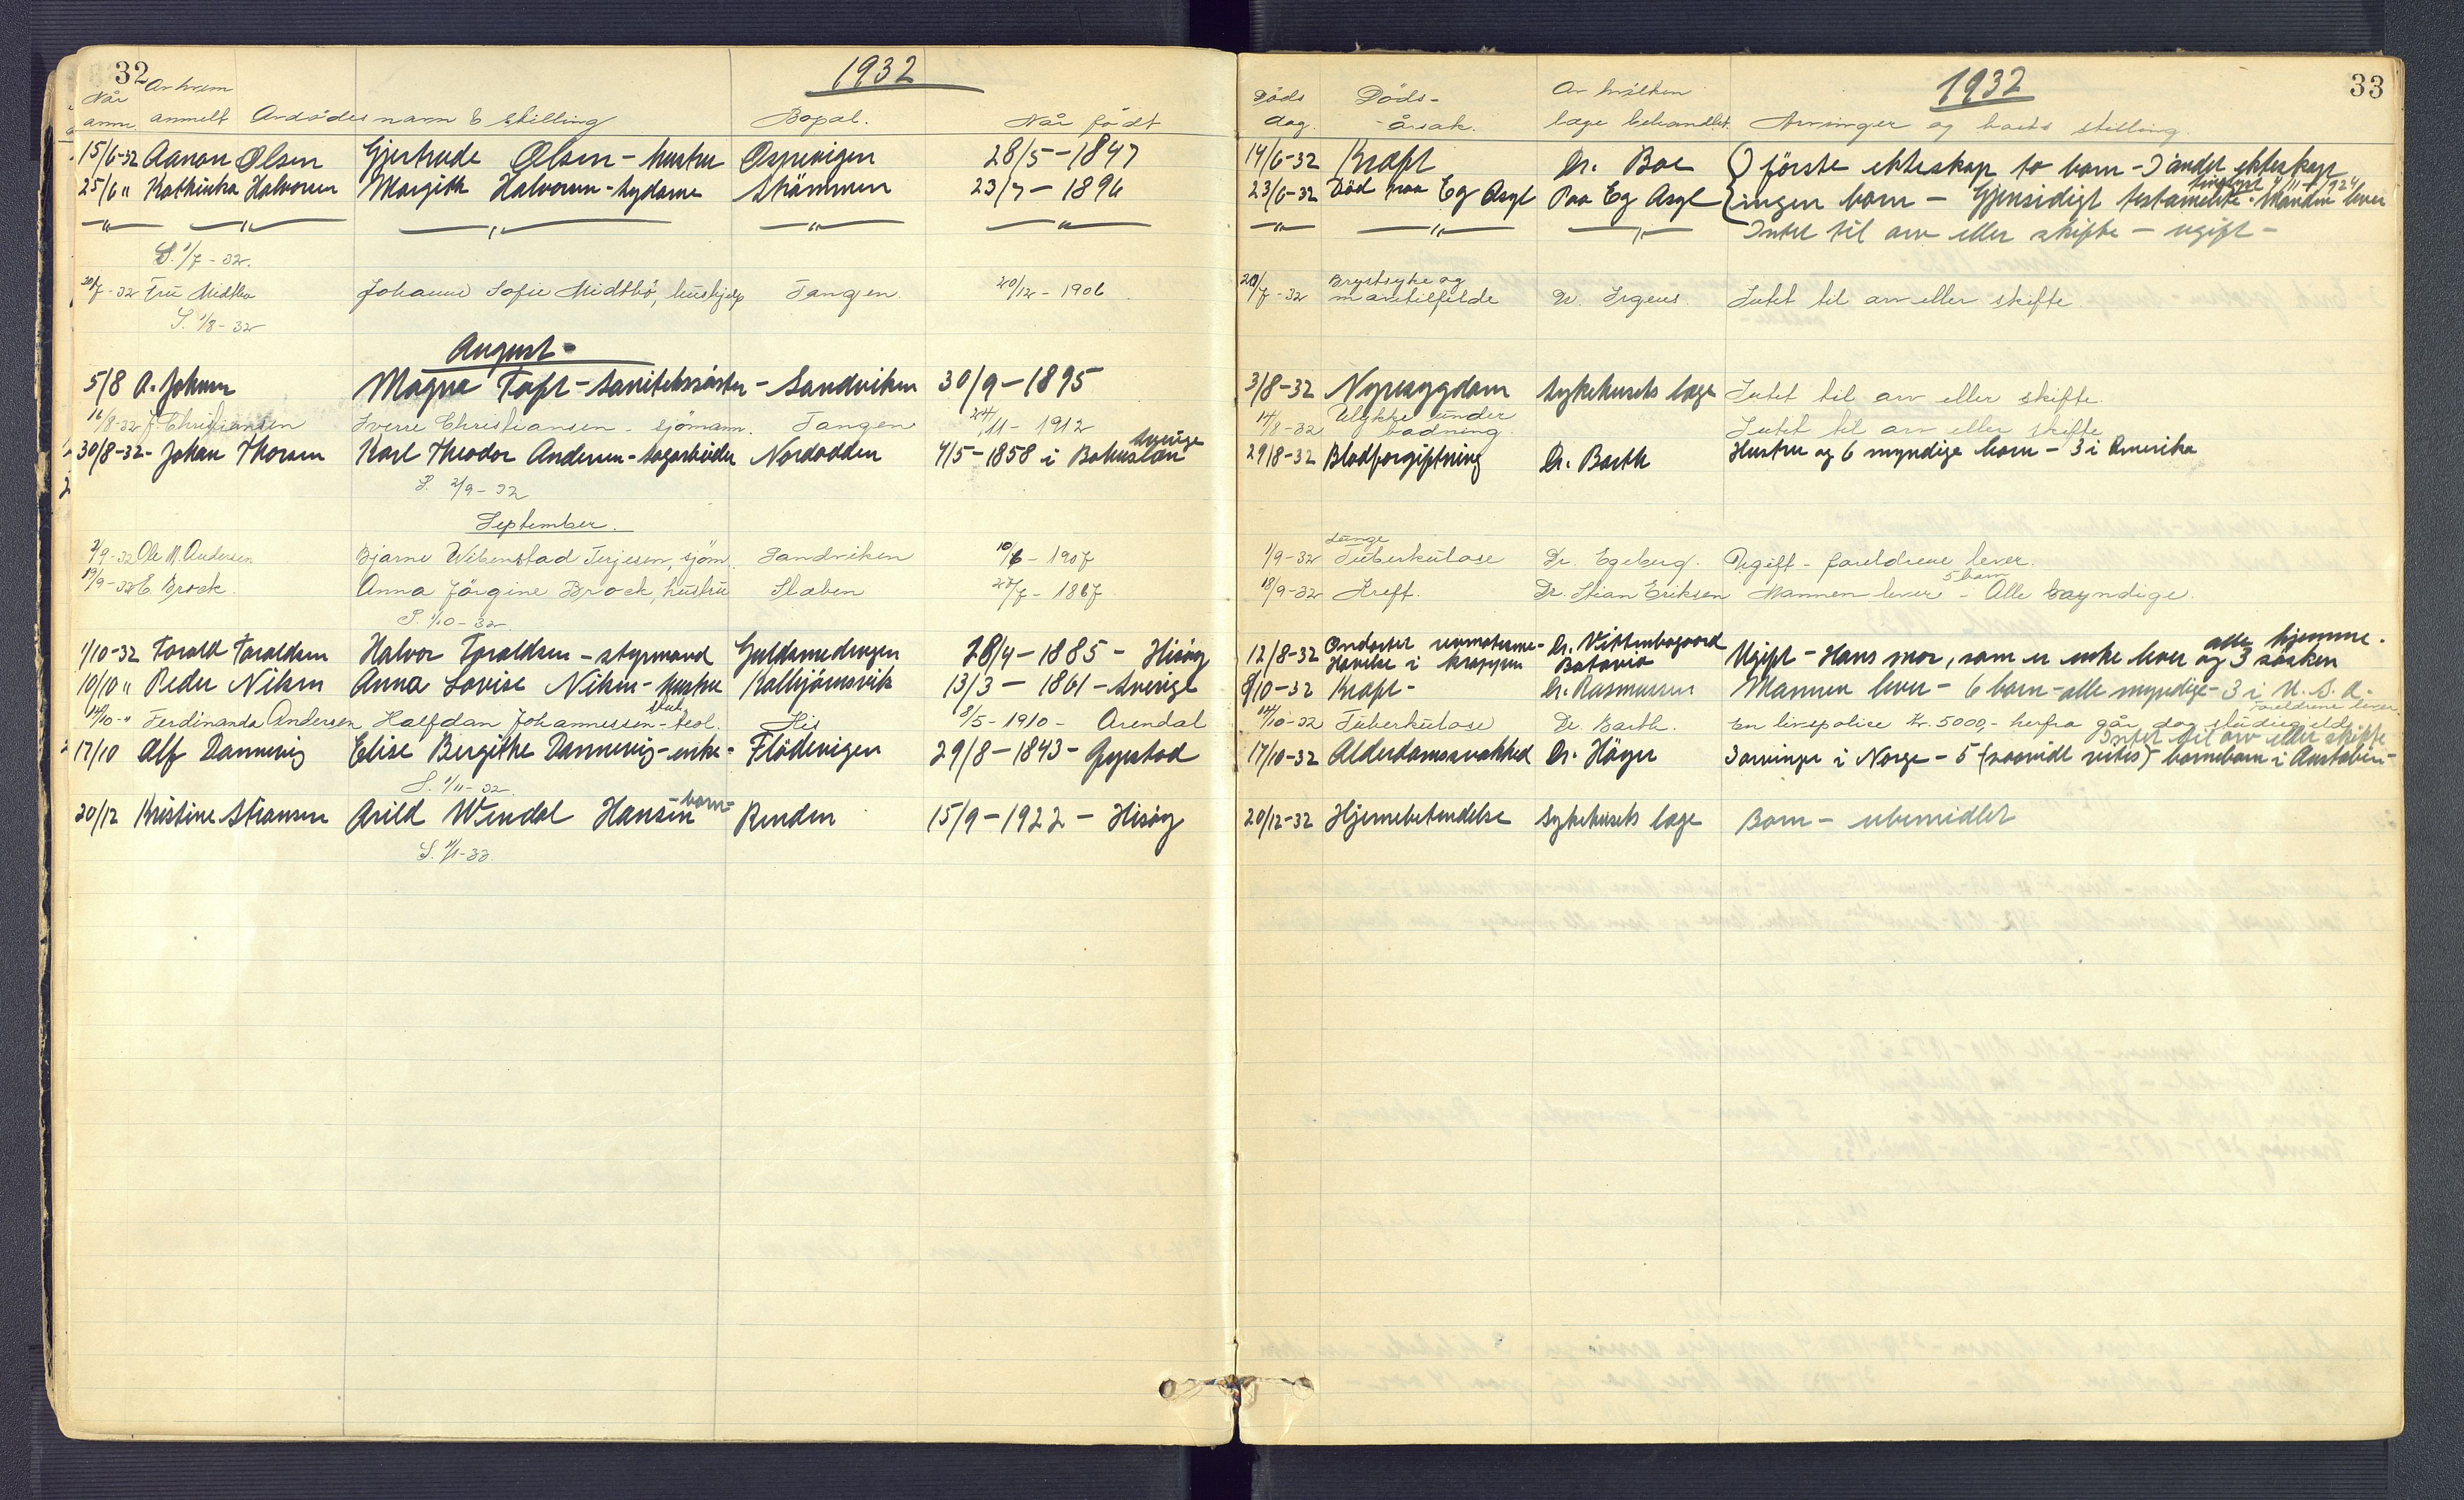 32
1932
Når Av hvem
anm. anmelt Avdödes navn & stilling Bopæl. Når födt
15/6-32 Aanon Olsen Gjertrude Olsen - hustru Ospevigen 28/5-1847
25/6 " Kathinka Halvorsen Margith Halvorsen - sydame Strömmen 23/7-1896
—"— —"— —"— —"— —"—
S. 1/7-32.
20/7-32 Fru Midtbö Johanne Sofie Midtbö, hushjelp Tangen. 20/12-1906
S. 1/8-32
August -
5/8 A. Johnsen Magna Toft - Sanitetssöster - Sandviken 30/9-1895
16/8-32 J. Christiansen Sverre Christiansen - sjömann. Tangen 24/11-1912
30/8-32- Johan Thorsen Karl Theodor Andersen - sagarbeider Nordodden 4/5-1858 i Bohuslän Sverige
S. 2/9-32
September.
2/9-32 Ole M. Andersen Bjarne Wibenstad Terjesen, sjöm. Sandviken 10/6-1907
19/9-32 E. Brock. Anna Jörgine Brock, hustru Staben 28/7-1867
S. 1/10-32
1/10-32 Torald Toraldsen Halvor Toraldsen - styrmand Guldsmedengen 28/4-1885 - Hisöy
10/10 " Peder Nilsen Anna Lovise Nilsen - hustru Kolbjörnsvik 13/3-1861 - Sverige
14/10-" Ferdinanda Andersen Halfdan Johannessen - stud. teol. His 8/5-1910 - Arendal
17/10 Alf Dannevig Elise Bergithe Dannevig - enke - Flödevigen 29/8-1843 - Gjerstad
S. 1/11-32.
20/12 Kristine Stransen Arild Wendal Hansen - barn - Renden 15/9-1922 - Hisöy
S. 1/1-33.
33
1932
Döds Döds- Av hvilken
dag. årsak. læge behandlet Arvinger og boets stilling.
14/6-32 Kræft Dr. Boe I förste ekteskap to barn - I andet ekteskap
23/6-32 Död paa Eg Asyl Paa Eg Asyl ingen barn - Gjensidigt testamente - tinglyst 1924 Manden lever
—"— —"— —"— Intet til arv eller skifte - ugift -
20/7-32 Brystsyke og
maveilfelde Dr. Irgens. Intet til arv eller skifte.
3/8-32 Nyresygdom Sykehusets læge Intet til arv eller skifte.
14/8-32 Ulykke under
badning. Intet til arv eller skifte
29/8-32 Blodforgiftning Dr. Barth Hustru og 6 myndige barn - 3 i Amerika
1/9-32 Lunge
Tuberkulose Dr. Egeberg. Ugift - foreldrene lever.
18/9-32 Kreft. Dr. Stian Eriksen Mannen lever - 5 barn Alle myndige.
12/8-32 Ondartet revmatisme - Dr. Vittenbogaard
Hevelse i kroppen Batavia Ugift - Hans mor, som er enke lever og 3 søsken alle hjemme.
8/10-32 Kræft - Dr. Rasmussen Mannen lever - 6 barn - alle myndige - 3 i U. S. A.
14/10-32 Tuberkulose Dr. Barth. En livspolice kr. 5000,- herfra går dog studiegjeld. Foreldrene lever.
Intet til arv eller skifte
17/10-32 Alderdomssvakhed Dr. Höyer 3 arvinger i Norge - 5 (saavidt vites) barnebarn i Australien -
20/12-32 Hjernebetendelse Sykehusets læge Barn - ubemidlet